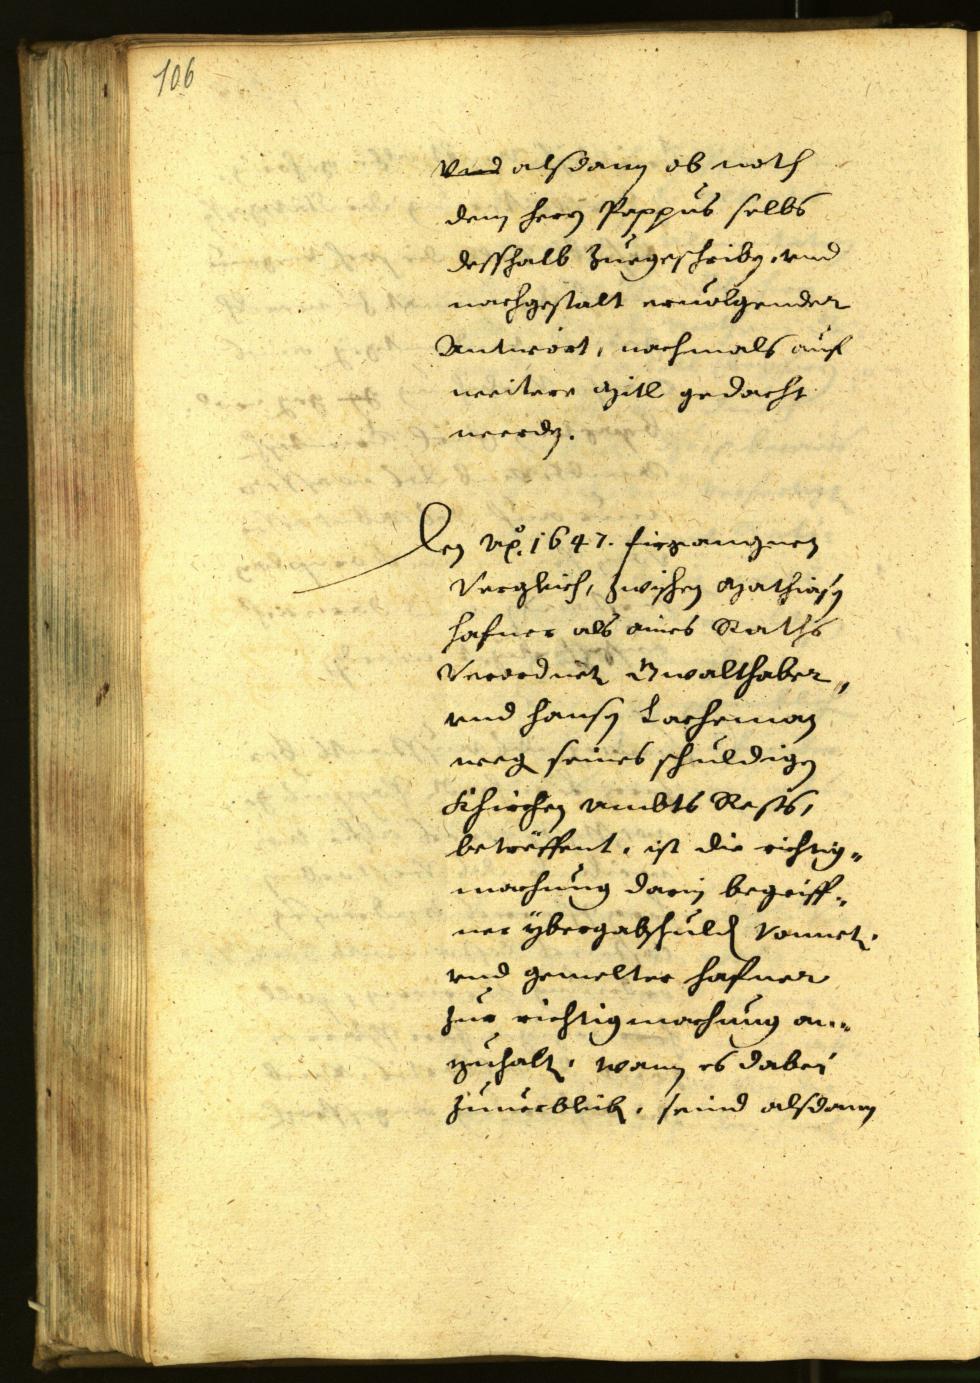 106
Vnd alsdann ob noth
dem herrn Pappus selbs
desshalb zuegeschriben, vnd
nachgestalt ervolgender
Antwort, nachmals auf
weitere mitl gedacht
werden.
Den Ao. 1647. firgangnen
Verglich, zwischen Mathiasn
hafner als aines Raths
Verordneten Gwalthaber,
vnd Hansn Lacheman
weg seines schuldigen
Khirchen Ambts Rests,
betreffent, ist die richtig„
machung darin begriff„
ner ybergabschulden Vonneten,
vnd gemelter hafner
zur richtigmachung an„
zuhalten, wann es dabei
zuuerbleiben, seind alsdann